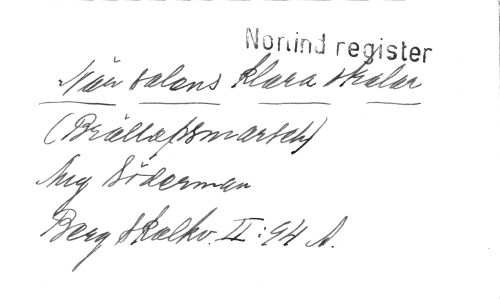 Norlind register
När salens klara skålar
(Bröllopsmarsch)
Aug Söderman
Berg Skolkv. II: 94 A.